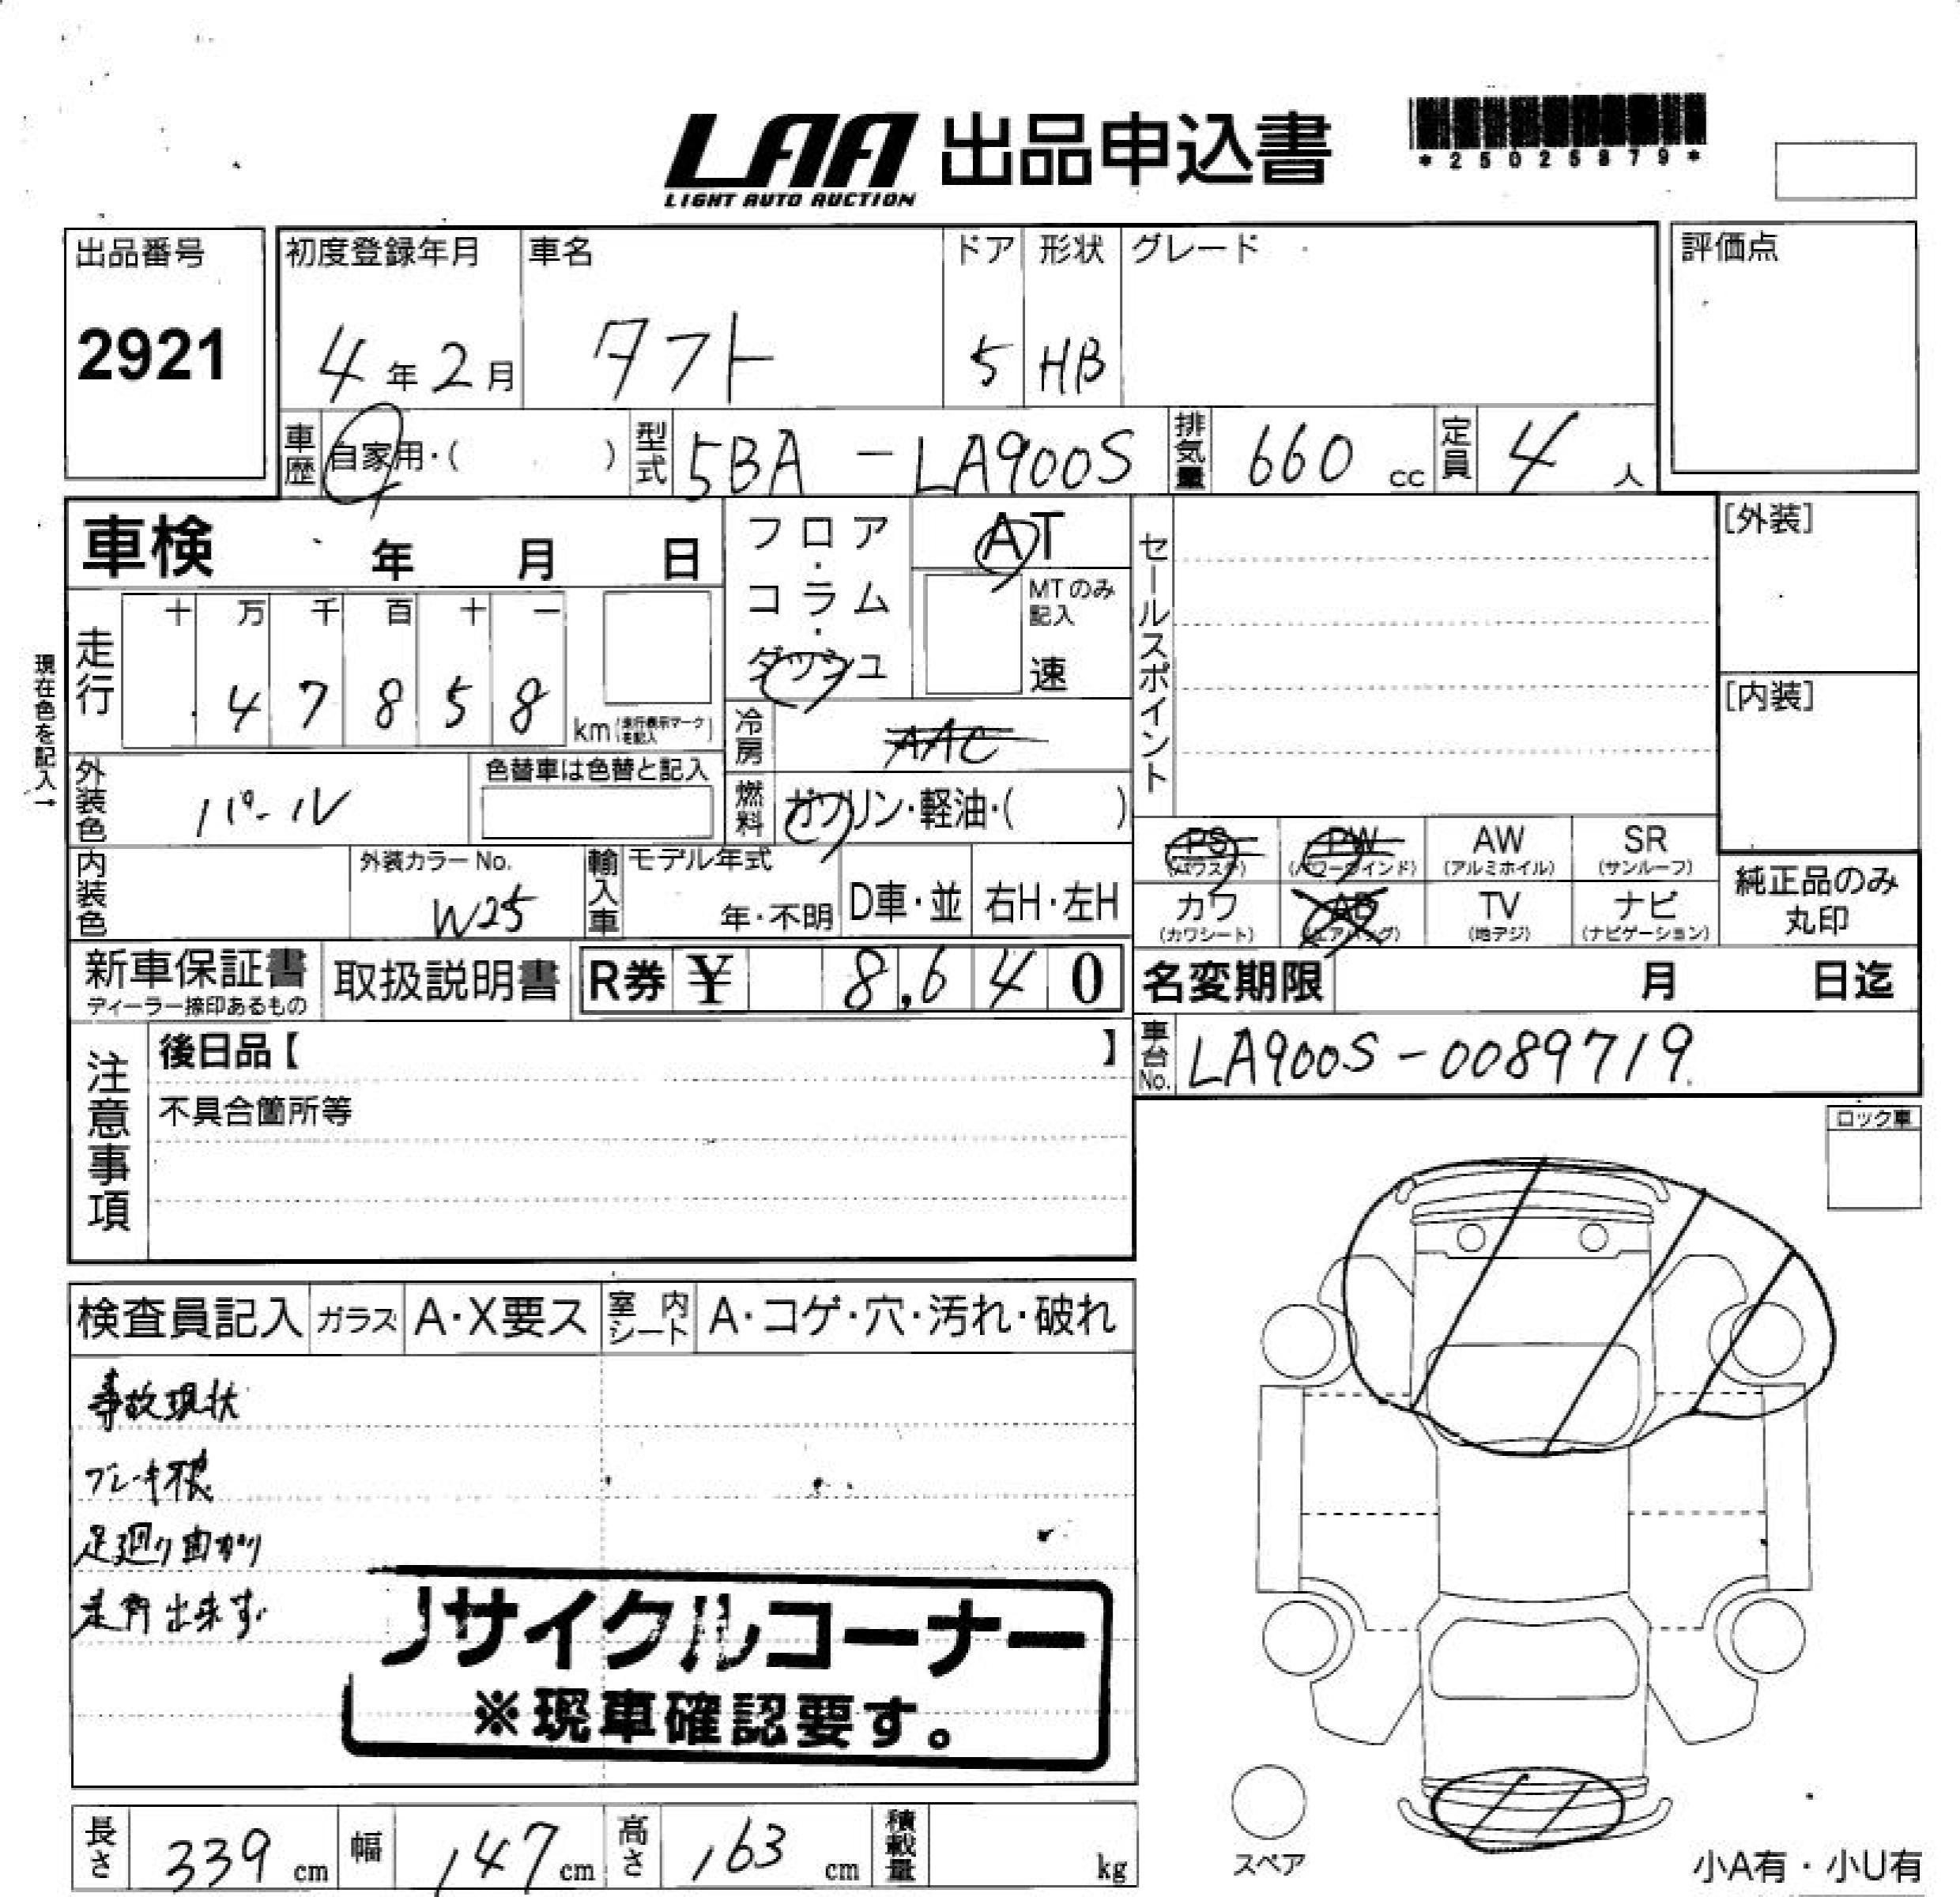 LAA 出品申込書
LIGHT AUTO AUCTION
*25025879*
出品番号
2921
初度登録年月
4年2月
車名
タフト
ドア
5
形状
HB
グレード
評価点
車歴
自家用・( )
型式
5BA - LA900S
排気量
660 cc
定員
4 人
車検 年 月 日
フロア・コラム・ダッシュ
AT
MTのみ記入
速
セールスポイント
[外装]
[内装]
現在色を記入→
走行
十 万 千 百 十 一
4 7 8 5 8
km (走行表示マークを記入)
冷房
AAC
外装色
パール
色替車は色替と記入
燃料
ガソリン・軽油・( )
PS
(パワステ)
PW
(パワーウインド)
AW
(アルミホイル)
SR
(サンルーフ)
内装色
外装カラーNo.
W25
輸入車
モデル年式
年・不明
D車・並
右H・左H
カワ
(カワシート)
AB
(エアバッグ)
TV
(地デジ)
ナビ
(ナビゲーション)
純正品のみ
丸印
新車保証書
ディーラー捺印あるもの
取扱説明書
R券 ¥ 8,640
名変期限 月 日迄
注意事項
後日品【 】
不具合箇所等
車台No.
LA900S-0089719
ロック車
検査員記入
ガラス
A・X要ス
室内シート
A・コゲ・穴・汚れ・破れ
事故現状
ブレーキ不良
足廻り曲がり
走行出来ず
リサイクルコーナー
※現車確認要す。
長さ
339 cm
幅
147 cm
高さ
163 cm
積載量
kg
スペア
小A有・小U有